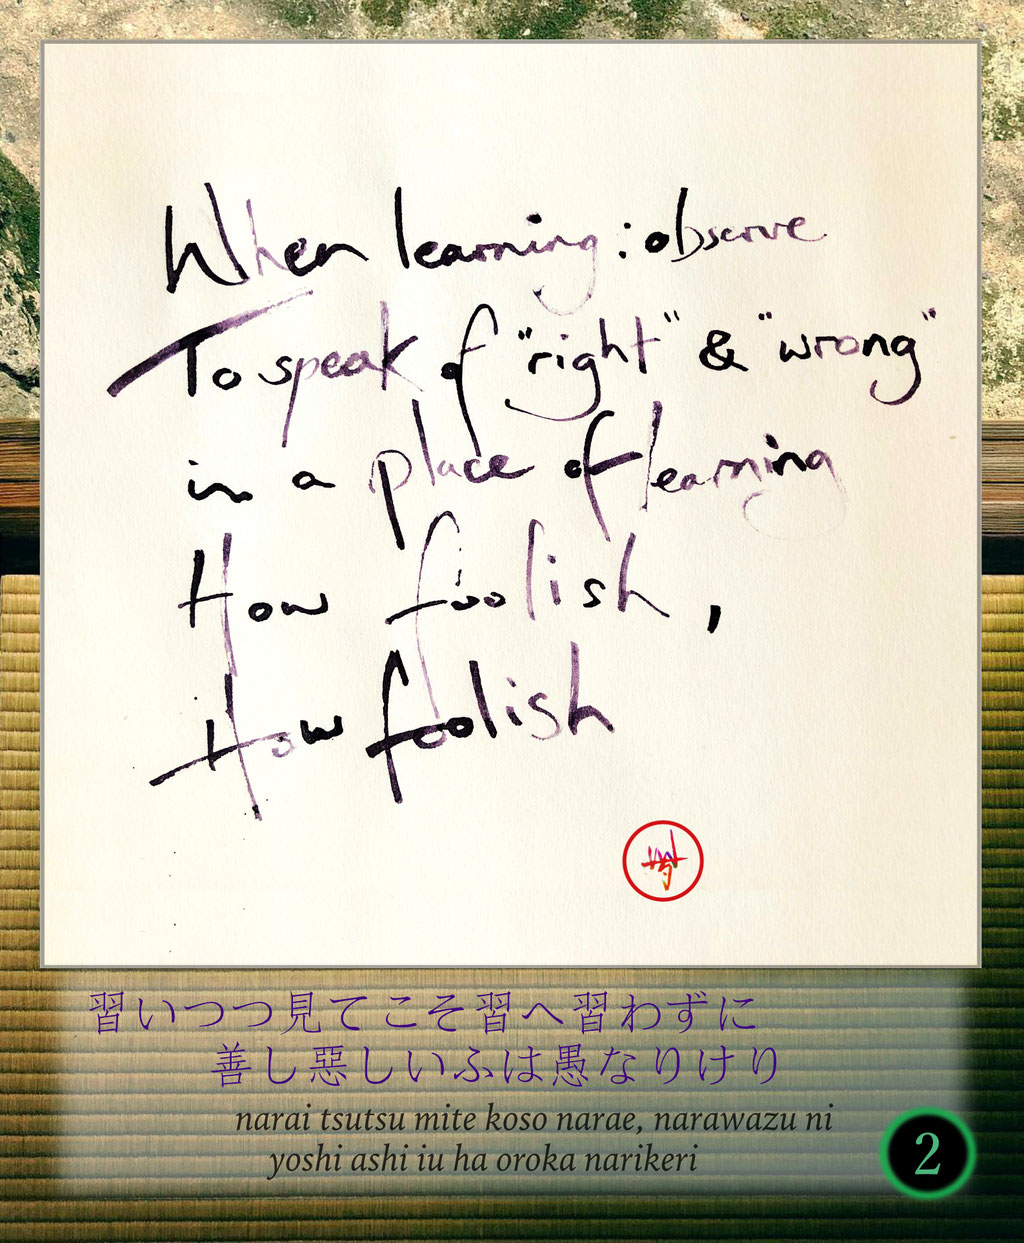 When learning : observe
To speak of "right" & "wrong"
in a place of learning
How foolish,
How foolish
習いつつ見てこそ習へ習わずに
善し惡しいふは愚なりけり
narai tsutsu mite koso narae, narawazu ni
yoshi ashi iu ha oroka narikeri
2